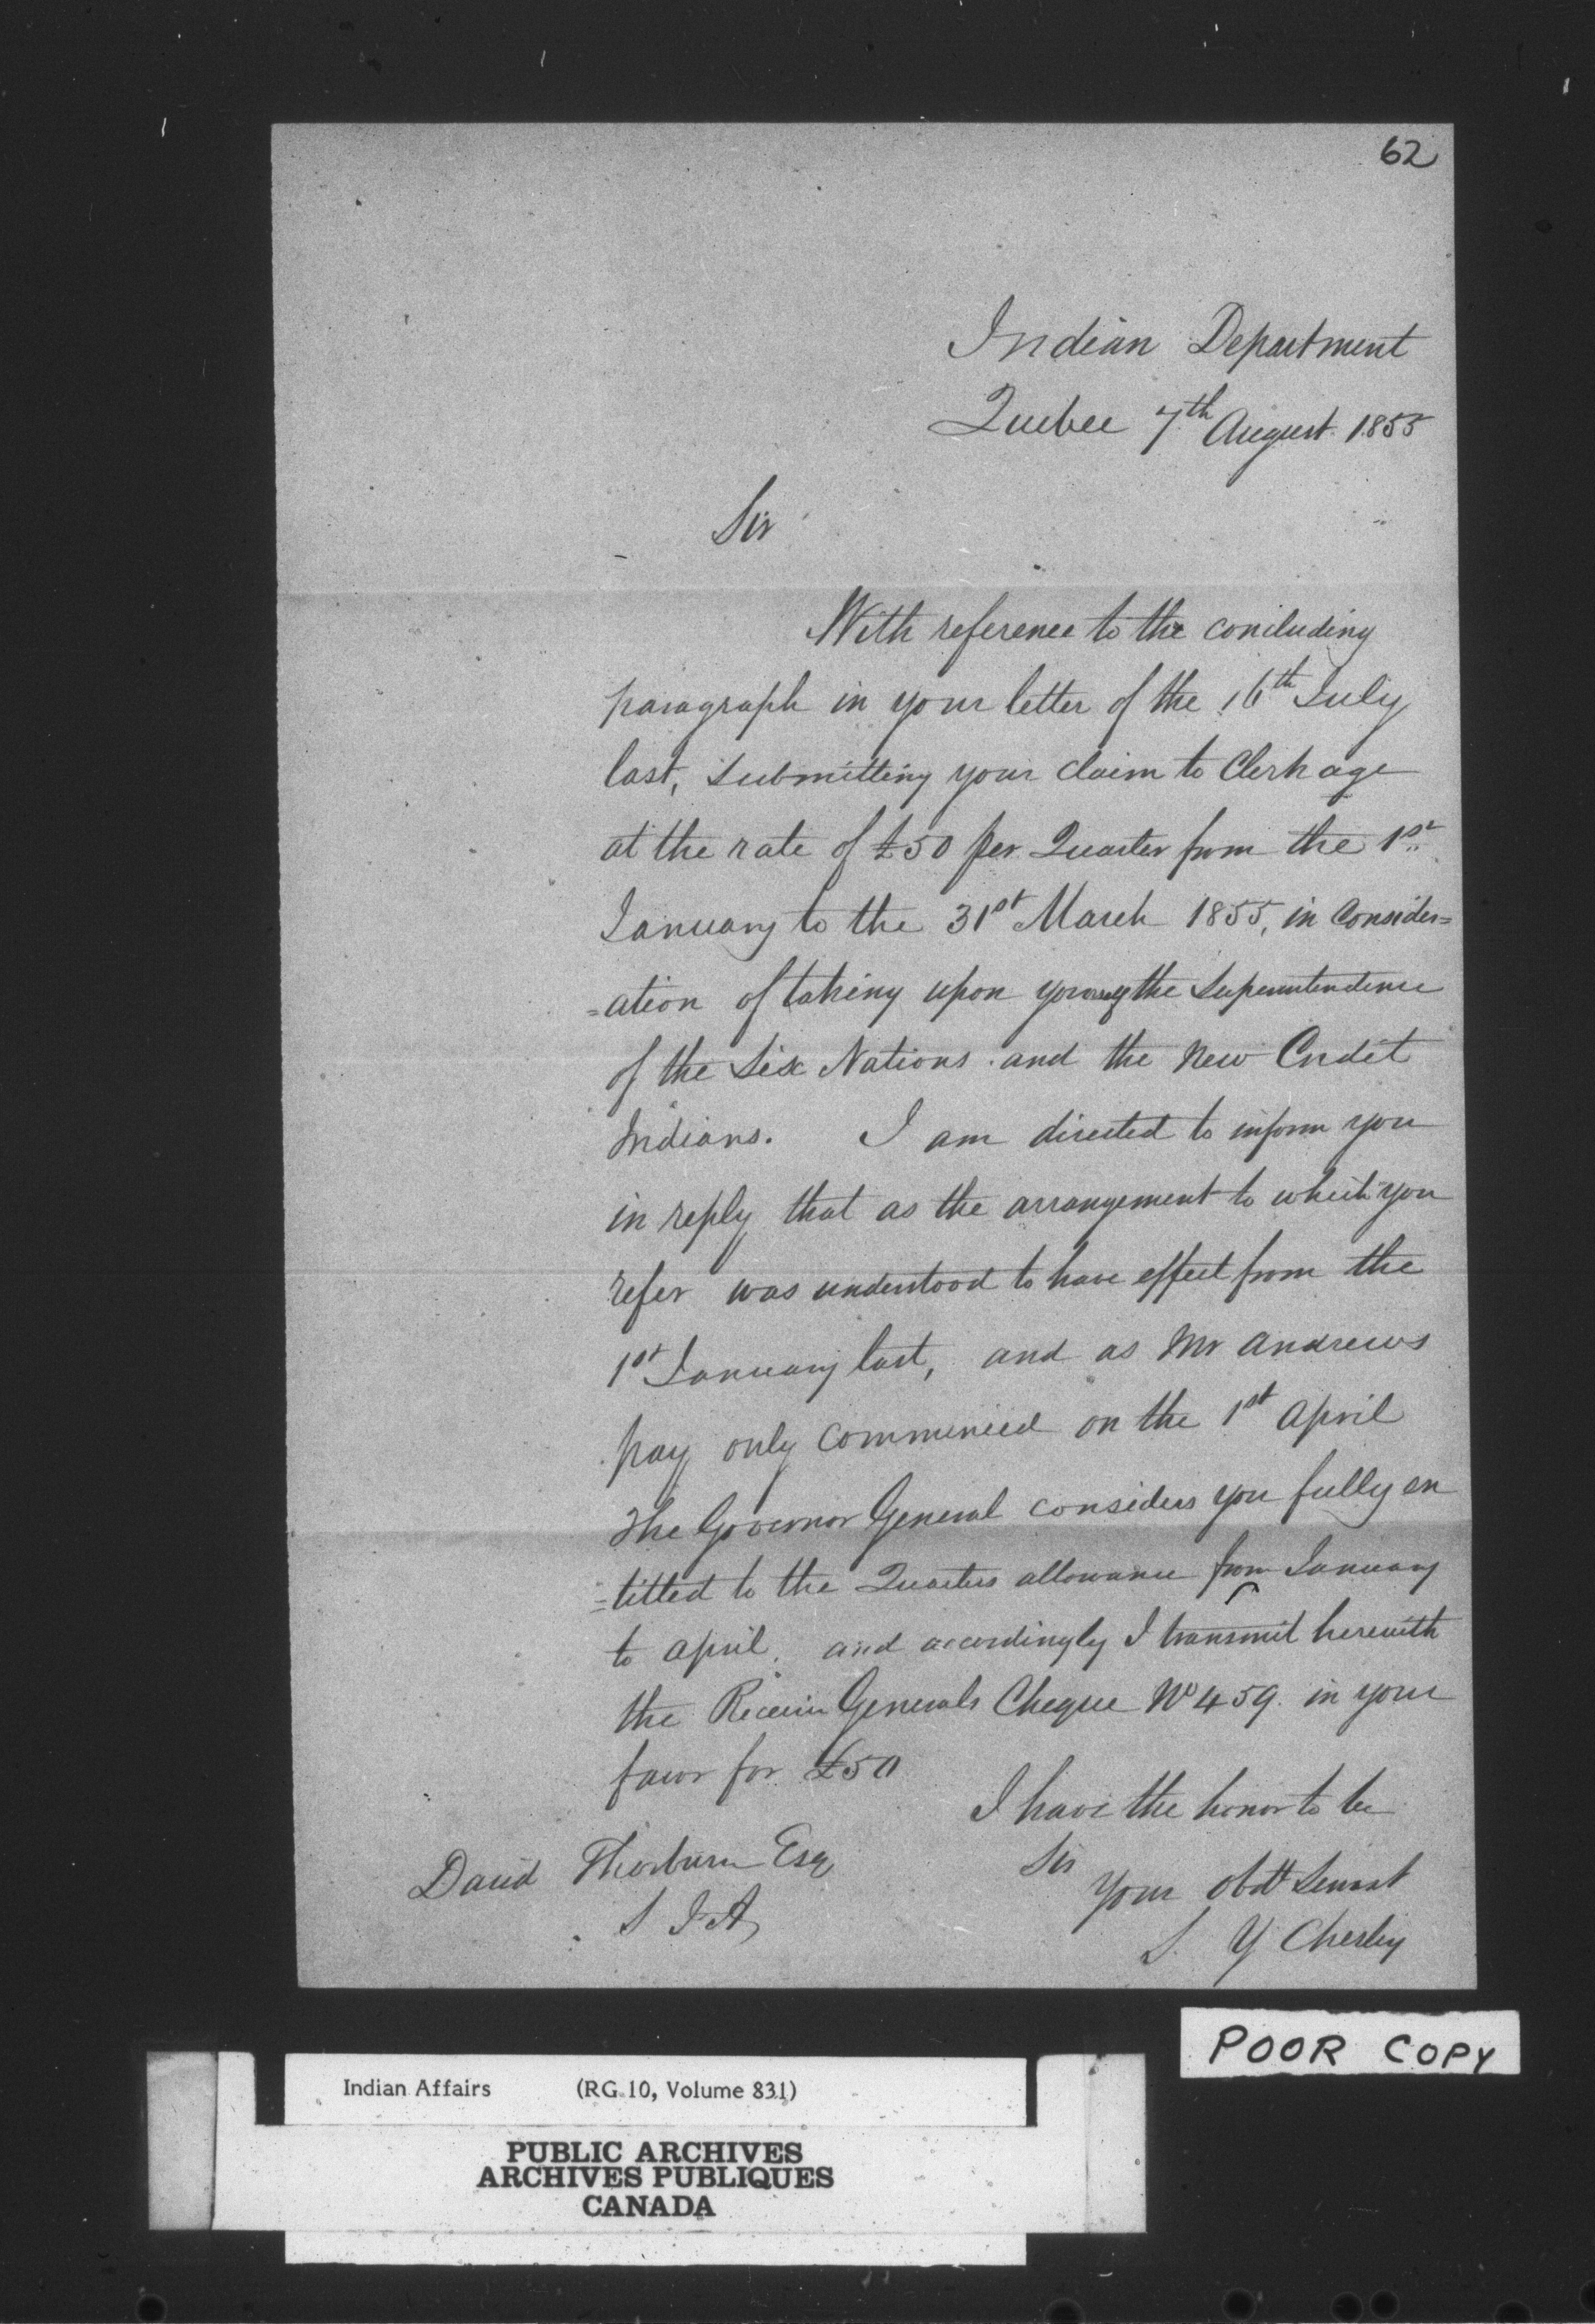 62
Indian Department
Quebec 7th August 1855
Sir
With reference to the concluding
paragraph in your letter of the 16th July
last, submitting your claim to Clerkage
at the rate of £50 per Quarter from the 1st
January to the 31st March 1855, in Consider=
=ation of taking upon the Superintendence
of the Six Nations and the New Credit
Indians. I am directed to inform you
in reply that as the arrangement to which you
refer was understood to have effect from the
1st January last, and as Mr Andrews
pay only commenced on the 1st April
The Governor General considers you fully en
=titled to the Quarters allowance from January
to April, and accordingly I transmit herewith
the Receiver Generals Cheque No 459 in your
favor for £50
I have the honor to be
Sir
Your obdt Servant
S. Y Chesley
David Thorburn Esq
S I A
POOR COPY
Indian Affairs (RG 10, Volume 831)
PUBLIC ARCHIVES
ARCHIVES PUBLIQUES
CANADA